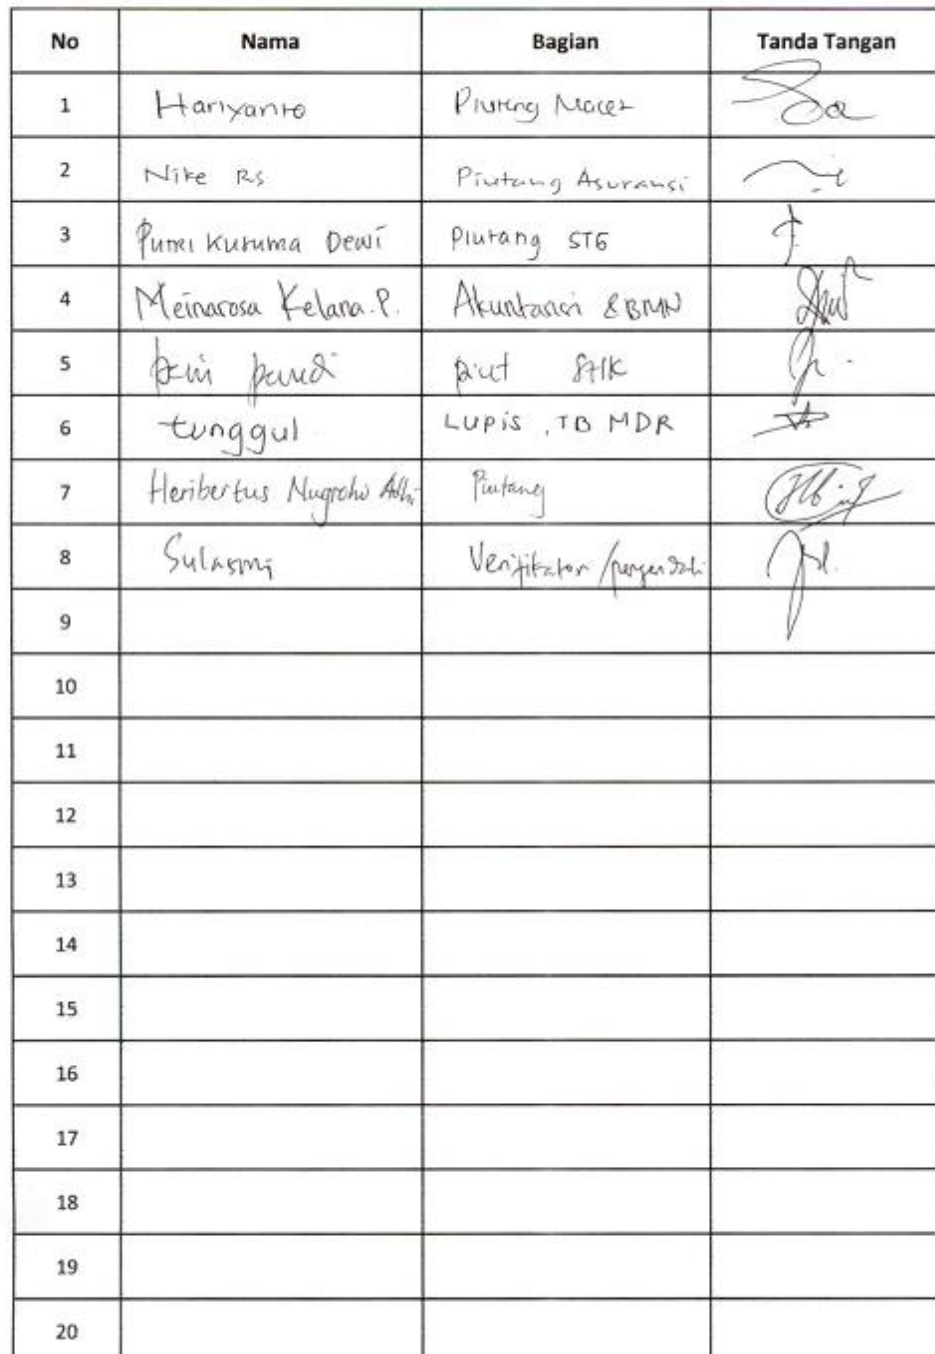 No Nama Bagian Tanda Tangan
1 Hariyanto Piutang Macet
2 Nike Rs Piutang Asuransi
3 Putri Kusuma Dewi Piutang
4 Meinarosa Kelana.P. Akuntansi & BMN
5 piut
6 tunggul LUPIS, TB MDR
7 Heribertus Nugroho Adhi Piutang
8 Sulasmi Verifikator /pengendali
9
10
11
12
13
14
15
16
17
18
19
20